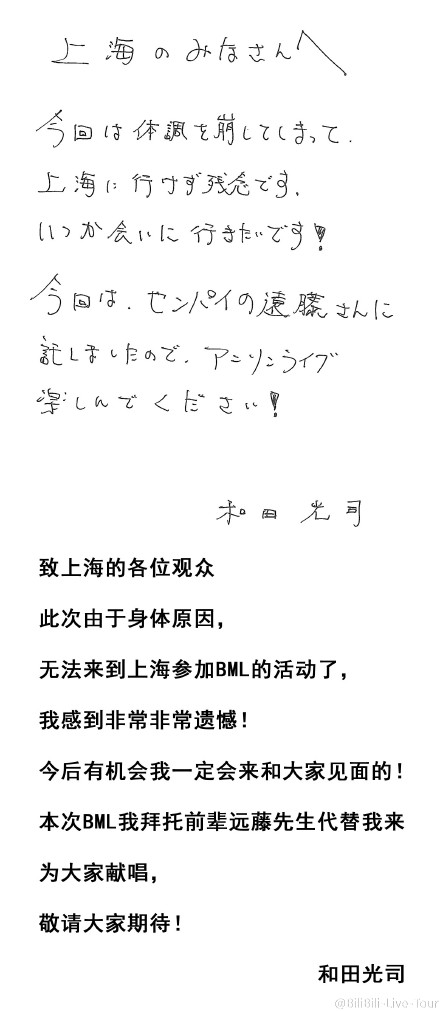 上海のみなさんへ
今回は体調を崩してしまって.
上海に行けず残念です.
いつか会いに行きたいです!
今回は.センパイの遠藤さんに
託しましたので.アニソンライブ
楽しんでください!
和田 光司
致上海的各位观众
此次由于身体原因，
无法来到上海参加BML的活动了，
我感到非常非常遗憾！
今后有机会我一定会来和大家见面的！
本次BML我拜托前辈远藤先生代替我来
为大家献唱，
敬请大家期待！
和田光司
@BiliBili-Live-four